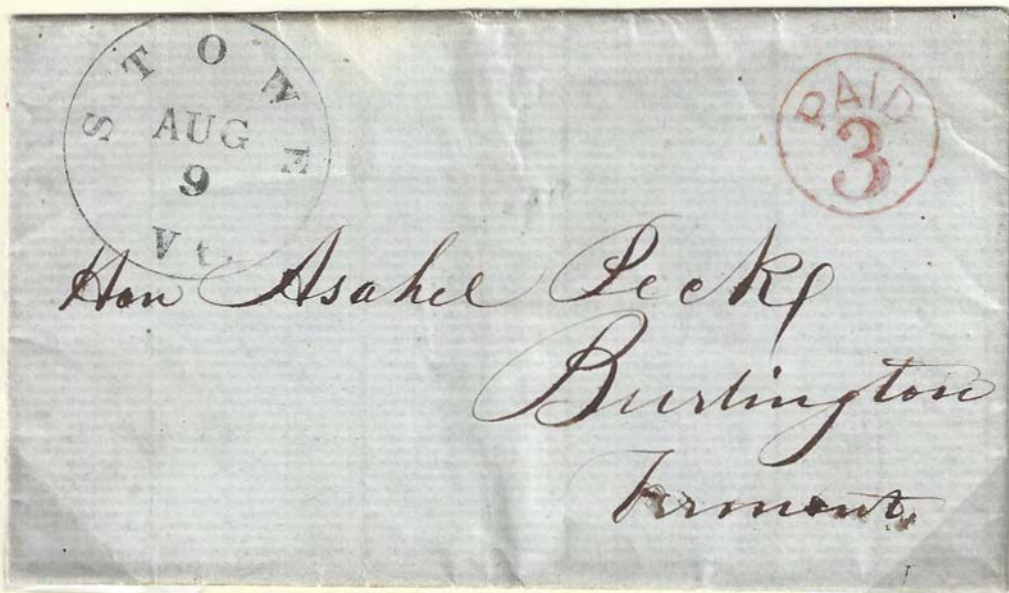 STOWE
AUG
9
Vt.
PAID
3
Hon Asahel Peck
Burlington
Vermont